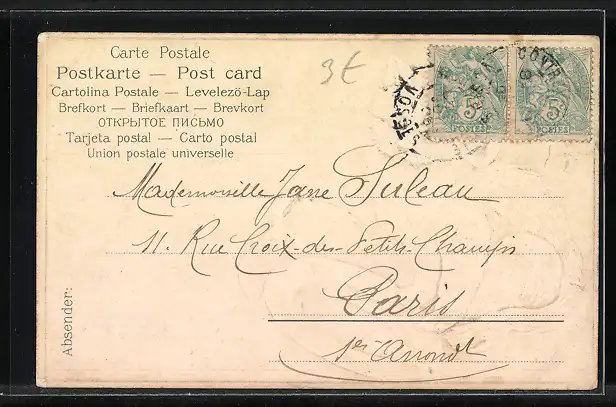 Carte Postale
Postkarte — Post card
Cartolina Postale — Levelező-Lap
Brefkort — Briefkaart — Brevkort
ОТКРЫТОЕ ПИСЬМО
Tarjeta postal — Carto postal
Union postale universelle
3€
5 5
POSTES POSTES
Mademoiselle Jane Suleau
11. Rue Croix-des-Petits-Champs
Paris
1er Arrondt
Absender: